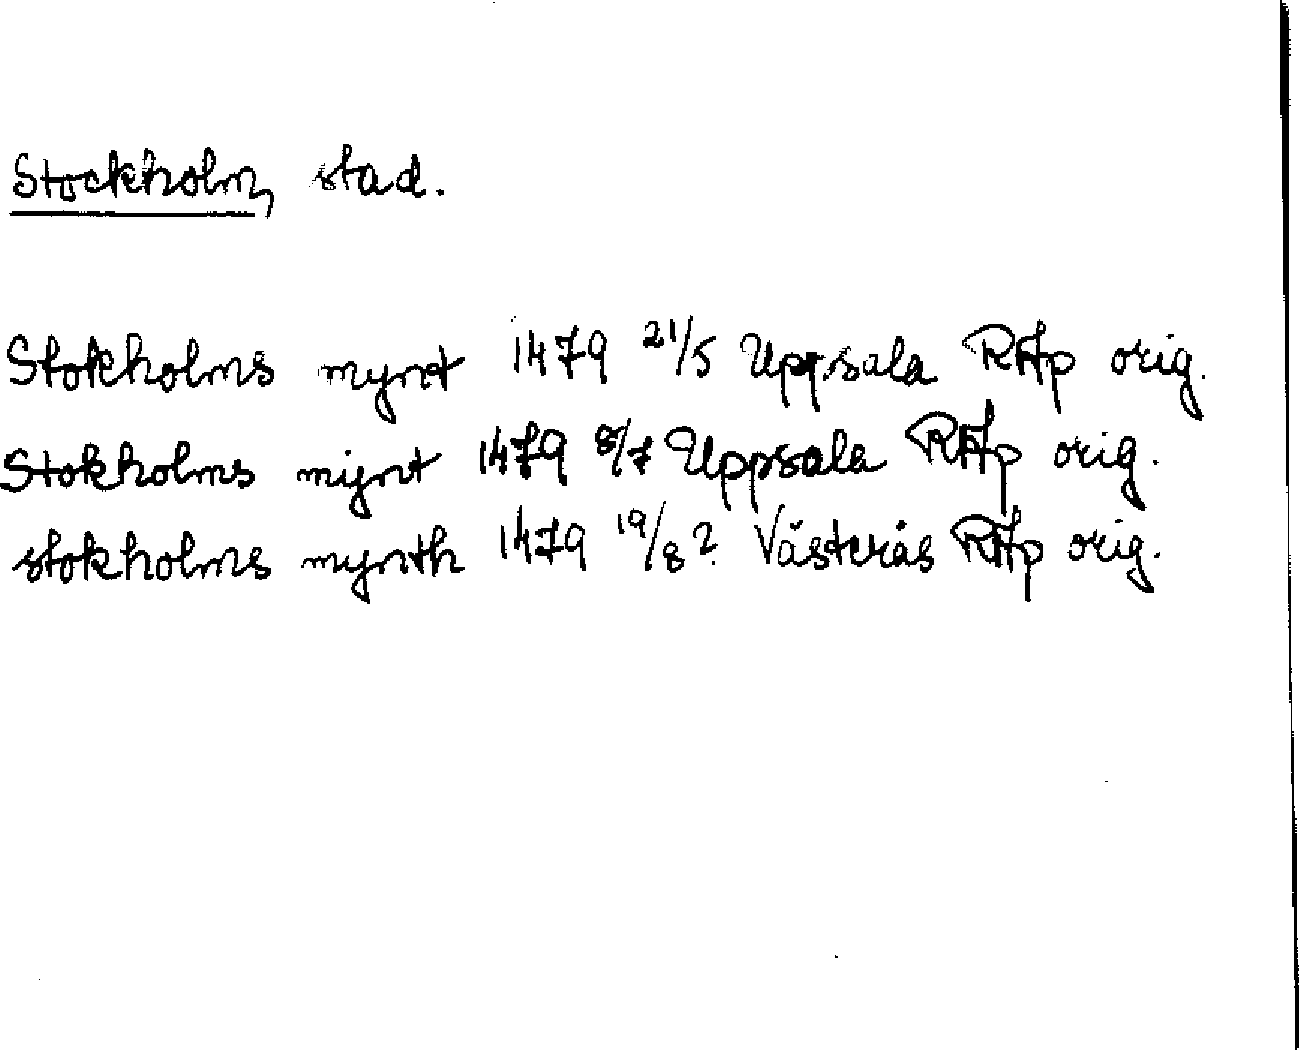 Stockholm, stad.
Stokholms mynt 1479 21/5 Uppsala RAp orig.
Stokholms mijnt 1479 8/7 Uppsala RAp orig.
stokholms mynth 1479 19/8? Västerås RAp orig.